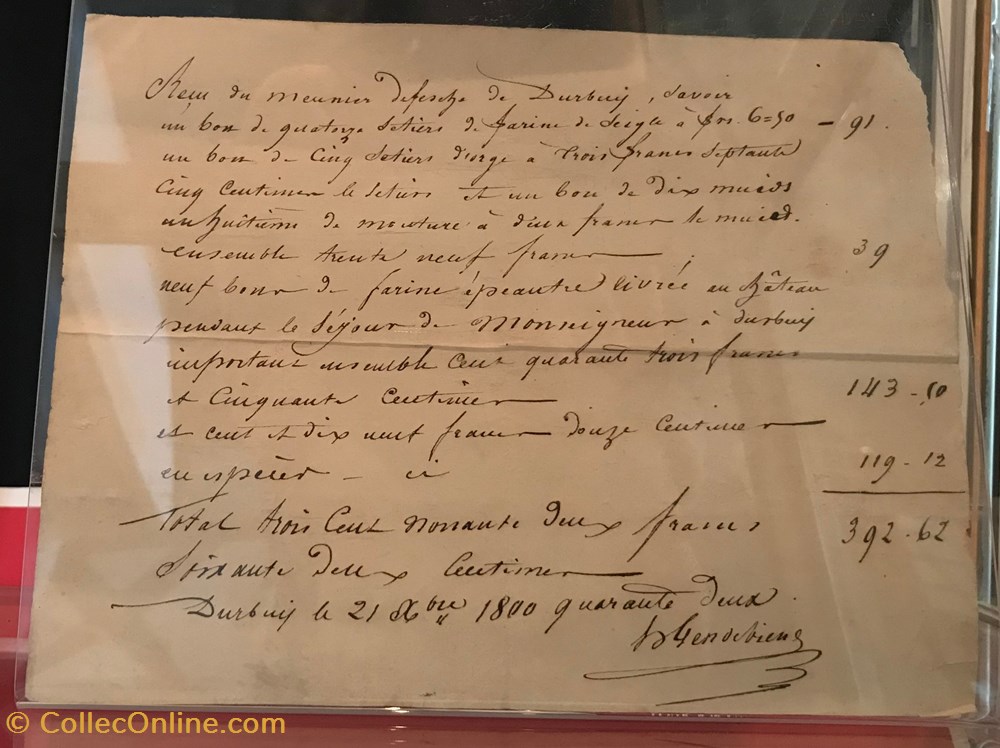 Recu du meunier defesche de Durbuy, savoir
un bon de quatorze setiers de farine de Seigle à frs. 6=50 – 91.
un bon de Cinq Setiers d'orge à trois francs Septante
Cinq Centimes le Setiers et un bon de dix muids
un huitième de mouture à deux francs le muid.
ensemble trente neuf francs 39
neuf bons de farine épeautre livrée au Château
pendant le Séjour de Monseigneur à durbuy
important ensemble Cent quarante trois francs
et Cinquante Centimes 143 - 50
et cent et dix neuf francs douze Centimes
en espèces – ci 119 - 12
Total trois Cent nonante deux francs 392 - 62
Soixante deux Centimes
Durbuy le 21 Xbre 1800 quarante deux
Gendebien
© CollecOnline.com